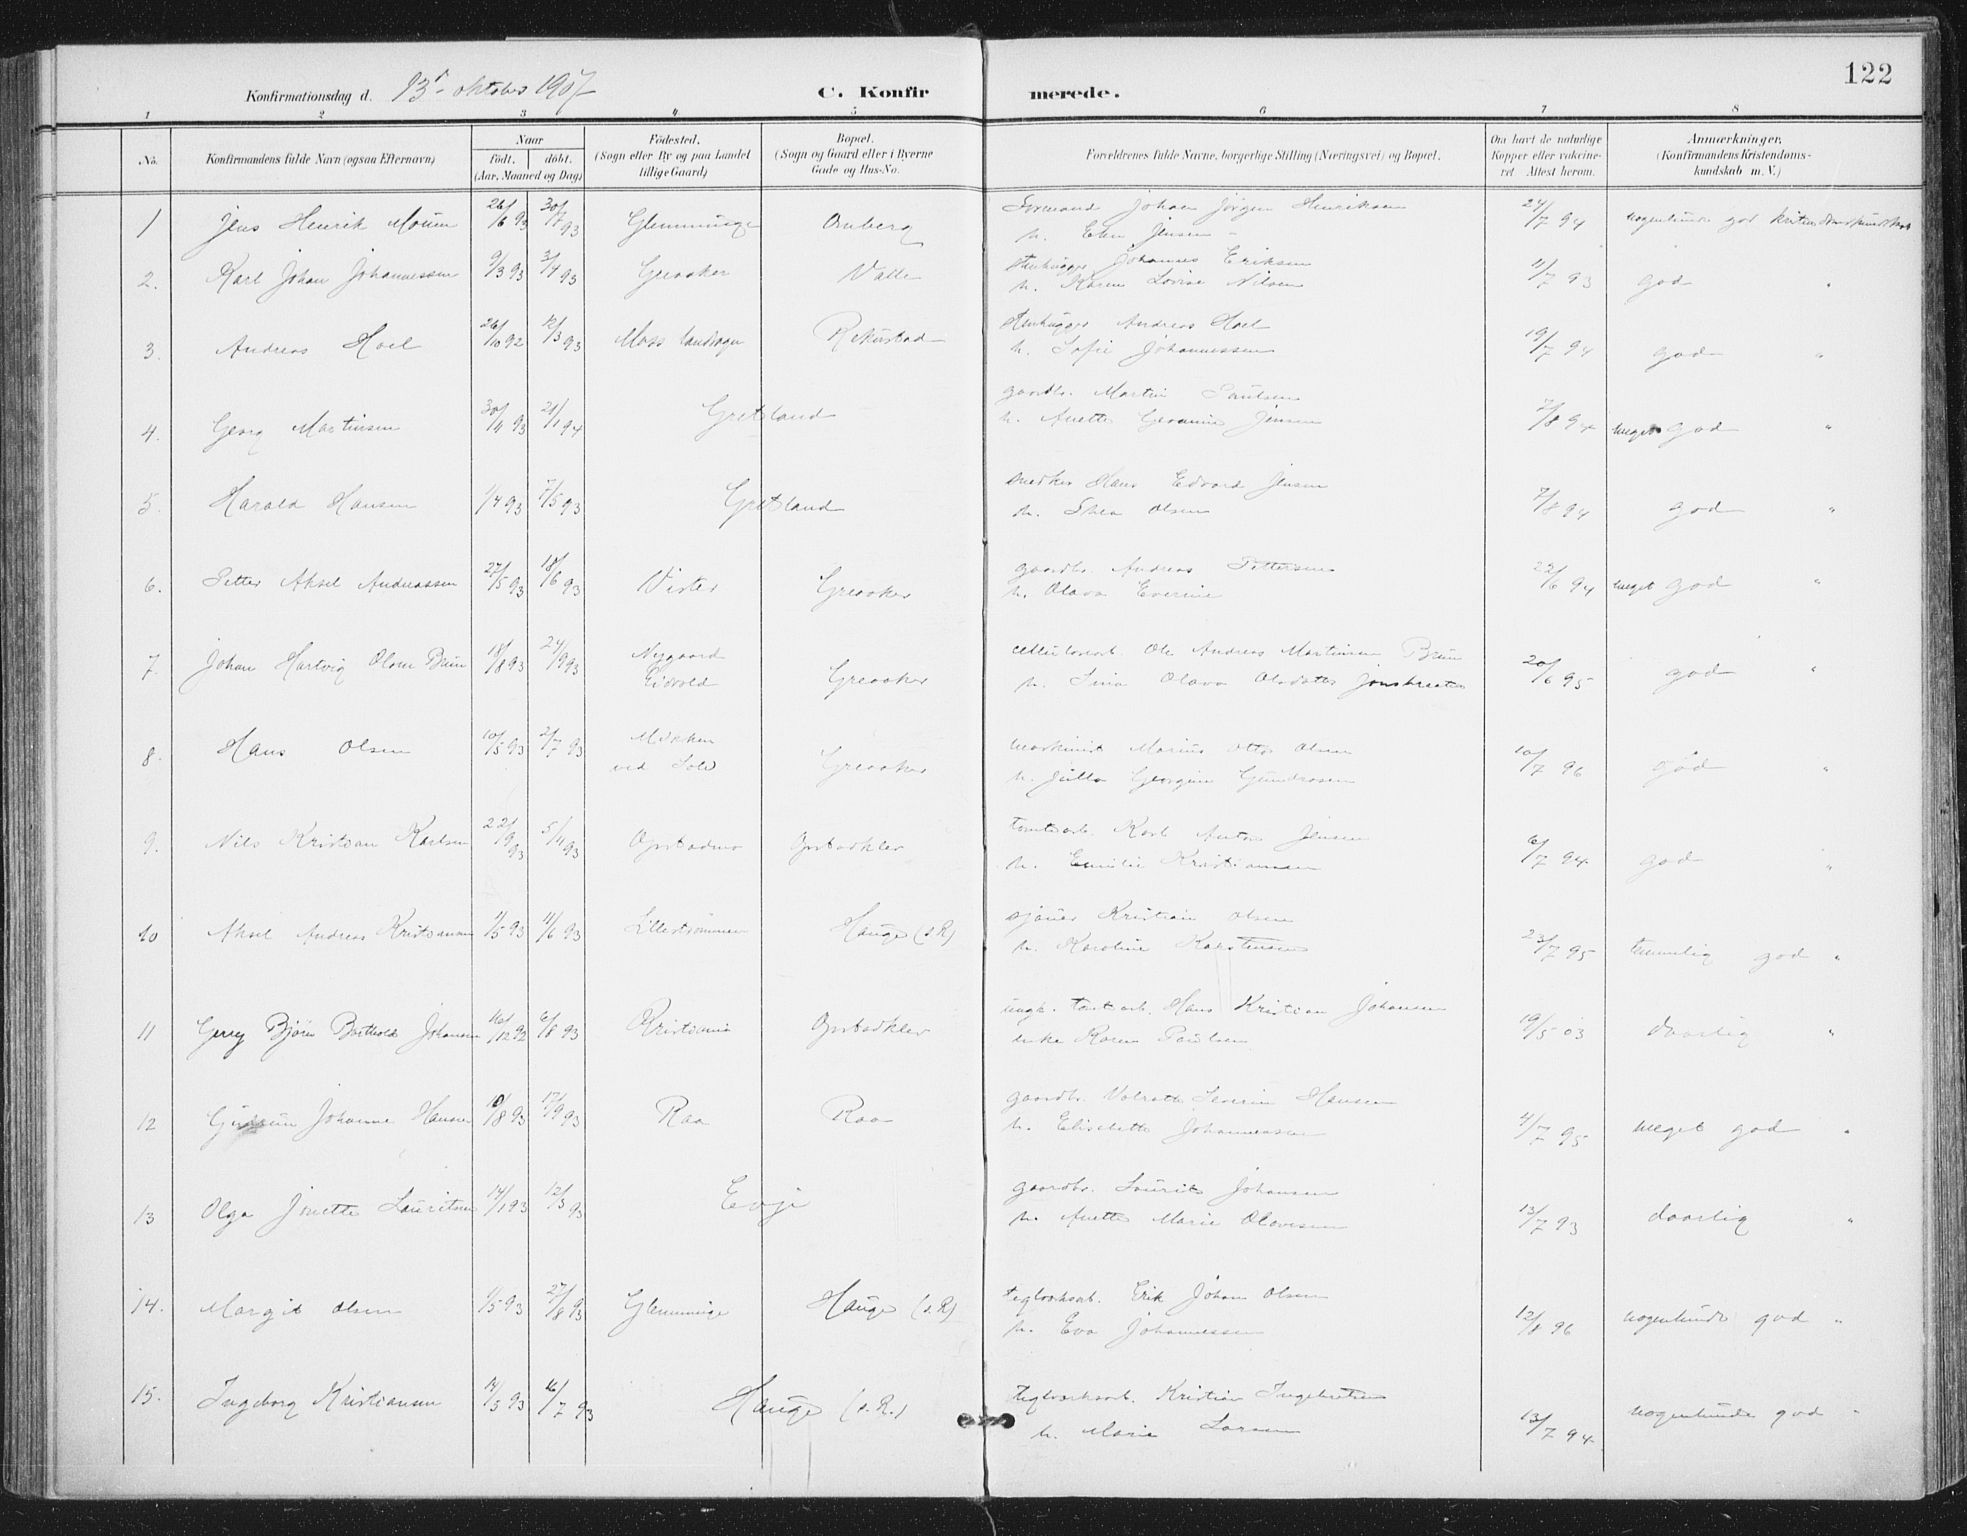 122
Konfirmationsdag d. 13de oktober 1907
C. Konfirmerede.
1 2 3 4 5 6 7 8
No.
Konfirmandens fulde Navn (ogsaa Efternavn)
Naar
födt. döbt.
(Aar, Maaned og Dag)
Födested.
(Sogn eller By og paa Landet
tillige Gaard)
Bopæl.
(Sogn og Gaard eller i Byerne
Gade og Hus-No.
Forældrenes fulde Navne, borgerlige Stilling (Næringsvei) og Bopæl.
Om havt de naturlige
Kopper eller vakcine-
ret Attest herom.
Anmærkninger,
(Konfirmandens Kristendoms-
kundskab m. V.)
1 Jens Henrik Moum 26/6 93 30/7 93 Glemminge Omberg
Formand Johan Jörgen Henriksen
h. Elen Jensen 24/7 94 nogenlunde god kristendomskundskab
2. Karl Johan Johannessen 9/3 93 3/4 93 Greaaker Valle
Stenhugger Johannes Eriksen
h. Karen Lovise Nilsen 11/7 93 god "
3. Andreas Hoel 26/10 92 12/3 93 Moss landsogn Rekustad
Stenhugger Andreas Hoel
h. Sofie Johannessen 19/7 94 god "
4. Georg Martinsen 30/11 93 21/1 94 Gretland
gaardbr. Martin Paulsen
h. Anette Jensen 7/8 94 meget god "
5. Harald Hansen 1/4 93 7/5 93 Gretland
snedker Hans Edvard Jensen
h. Thea Olsen 7/8 94 god "
6. Petter Aksel Andreassen 27/5 93 18/6 93 Vister Greaaker
gaardbr. Andreas Pettersen
h. Olava Everine 22/6 94 meget god "
7. Johan Hartvig Olsen Brun 18/8 93 24/9 93 Nygaard
Eidvold Greaaker
cellulosearb. Ole Andreas Martinsen Brun
h. Lina Olava Olsdatter 20/6 95 god "
8. Hans Olsen 10/5 93 2/7 93
ved Greaaker
maskinist Marius Otto Olsen
h. Julla Georgine Gundrosen 10/7 96 god "
9. Nils Kristian Karlsen 22/9 93 5/11 93 Opstadmo Opstadklev
tomtearb. Karl Anton Jensen
h. Emilie Kristiansen 6/7 94 god "
10 Aksel Andreas Kristiansen 1/5 93 11/6 93 Lilleströmmen Hauge (s.R)
sjömd Kristian Olsen
h. Karoline Karstensen 23/7 95 temmelig god "
11 Gerry Björn Berthold Johansen 10/12 92 6/8 93 Kristiania Opstadklev
ungk. tomtearb. Hans Kristian Johansen
enke Karen Paulsen 19/5 03 daarlig "
12 Gudrun Johanne Hansen 10/8 93 17/9 93 Raa Raa
gaardbr. Volrath Severin Hansen
h. Elisebette Johannessen 4/7 95 meget god "
13 Olga Jonette Lauritsen 14/1 93 12/3 93 Evje
gaardbr. Laurits Johansen
h. Anette Marie Olavesen 13/7 93 daarlig "
14. Margit Olsen 1/5 93 27/8 93 Glemminge Hauge (s.R)
teglverksarb. Erik Johan Olsen
h. Eva Johannessen 12/8 96 nogenlunde god "
15. Ingeborg Kristiansen 14/5 93 16/7 93 Hauge (s.R.)
teglverksarb. Kristian Ingebretsen
h. Marie Larsen 13/7 94 nogenlunde god "